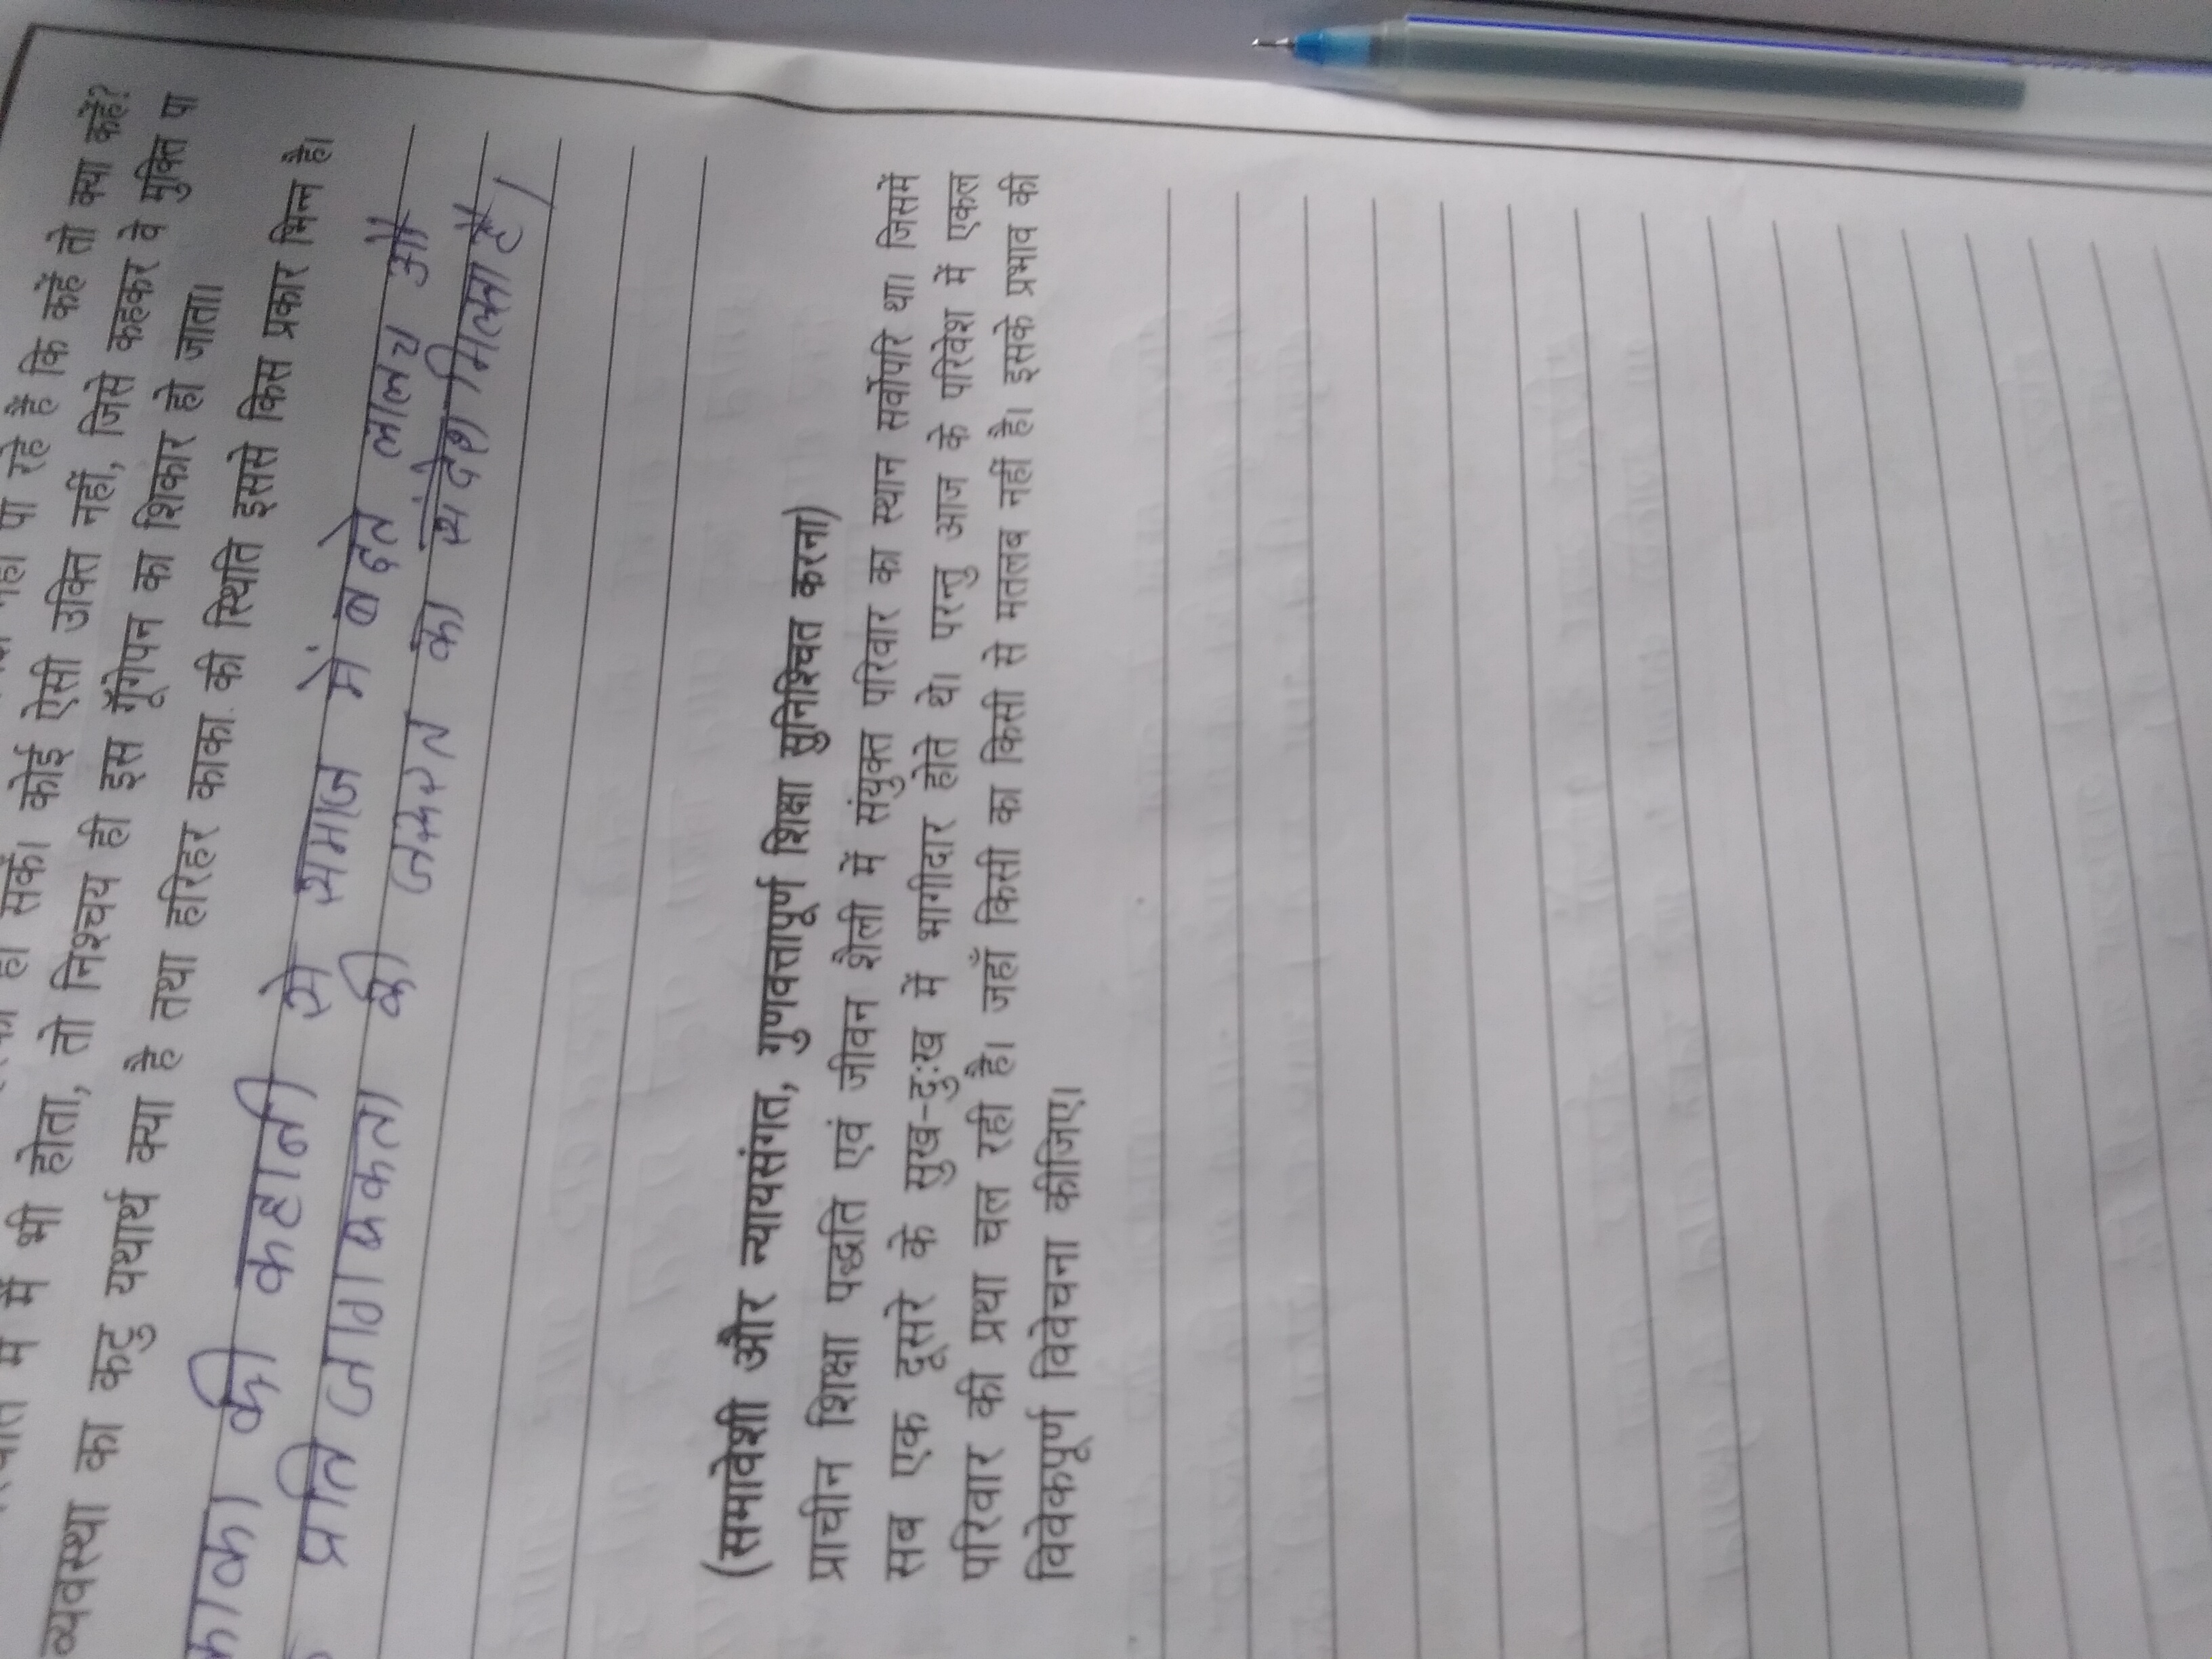 में मैं भी होता, तो निश्चय ही इस गूँगेपन का शिकार हो जाता।
हो सकें। कोई ऐसी उक्ति नहीं, जिसे कहकर वे मुक्ति पा
नहीं पा रहे हैं कि कहें तो क्या कहें?
व्यवस्था का कटु यथार्थ क्या है तथा हरिहर काका. की स्थिति इससे किस प्रकार भिन्न है।
काका की कहानी से समाज में बढ़ते लालच औ
प्रति जागरूकता की जरूरत का संदेश मिलता है।
(समावेशी और न्यायसंगत, गुणवत्तापूर्ण शिक्षा सुनिश्चित करना)
प्राचीन शिक्षा पद्धति एवं जीवन शैली में संयुक्त परिवार का स्थान सर्वोपरि था। जिसमें
सब एक दूसरे के सुख-दुःख में भागीदार होते थे। परन्तु आज के परिवेश में एकल
परिवार की प्रथा चल रही है। जहाँ किसी का किसी से मतलब नहीं है। इसके प्रभाव की
विवेकपूर्ण विवेचना कीजिए।